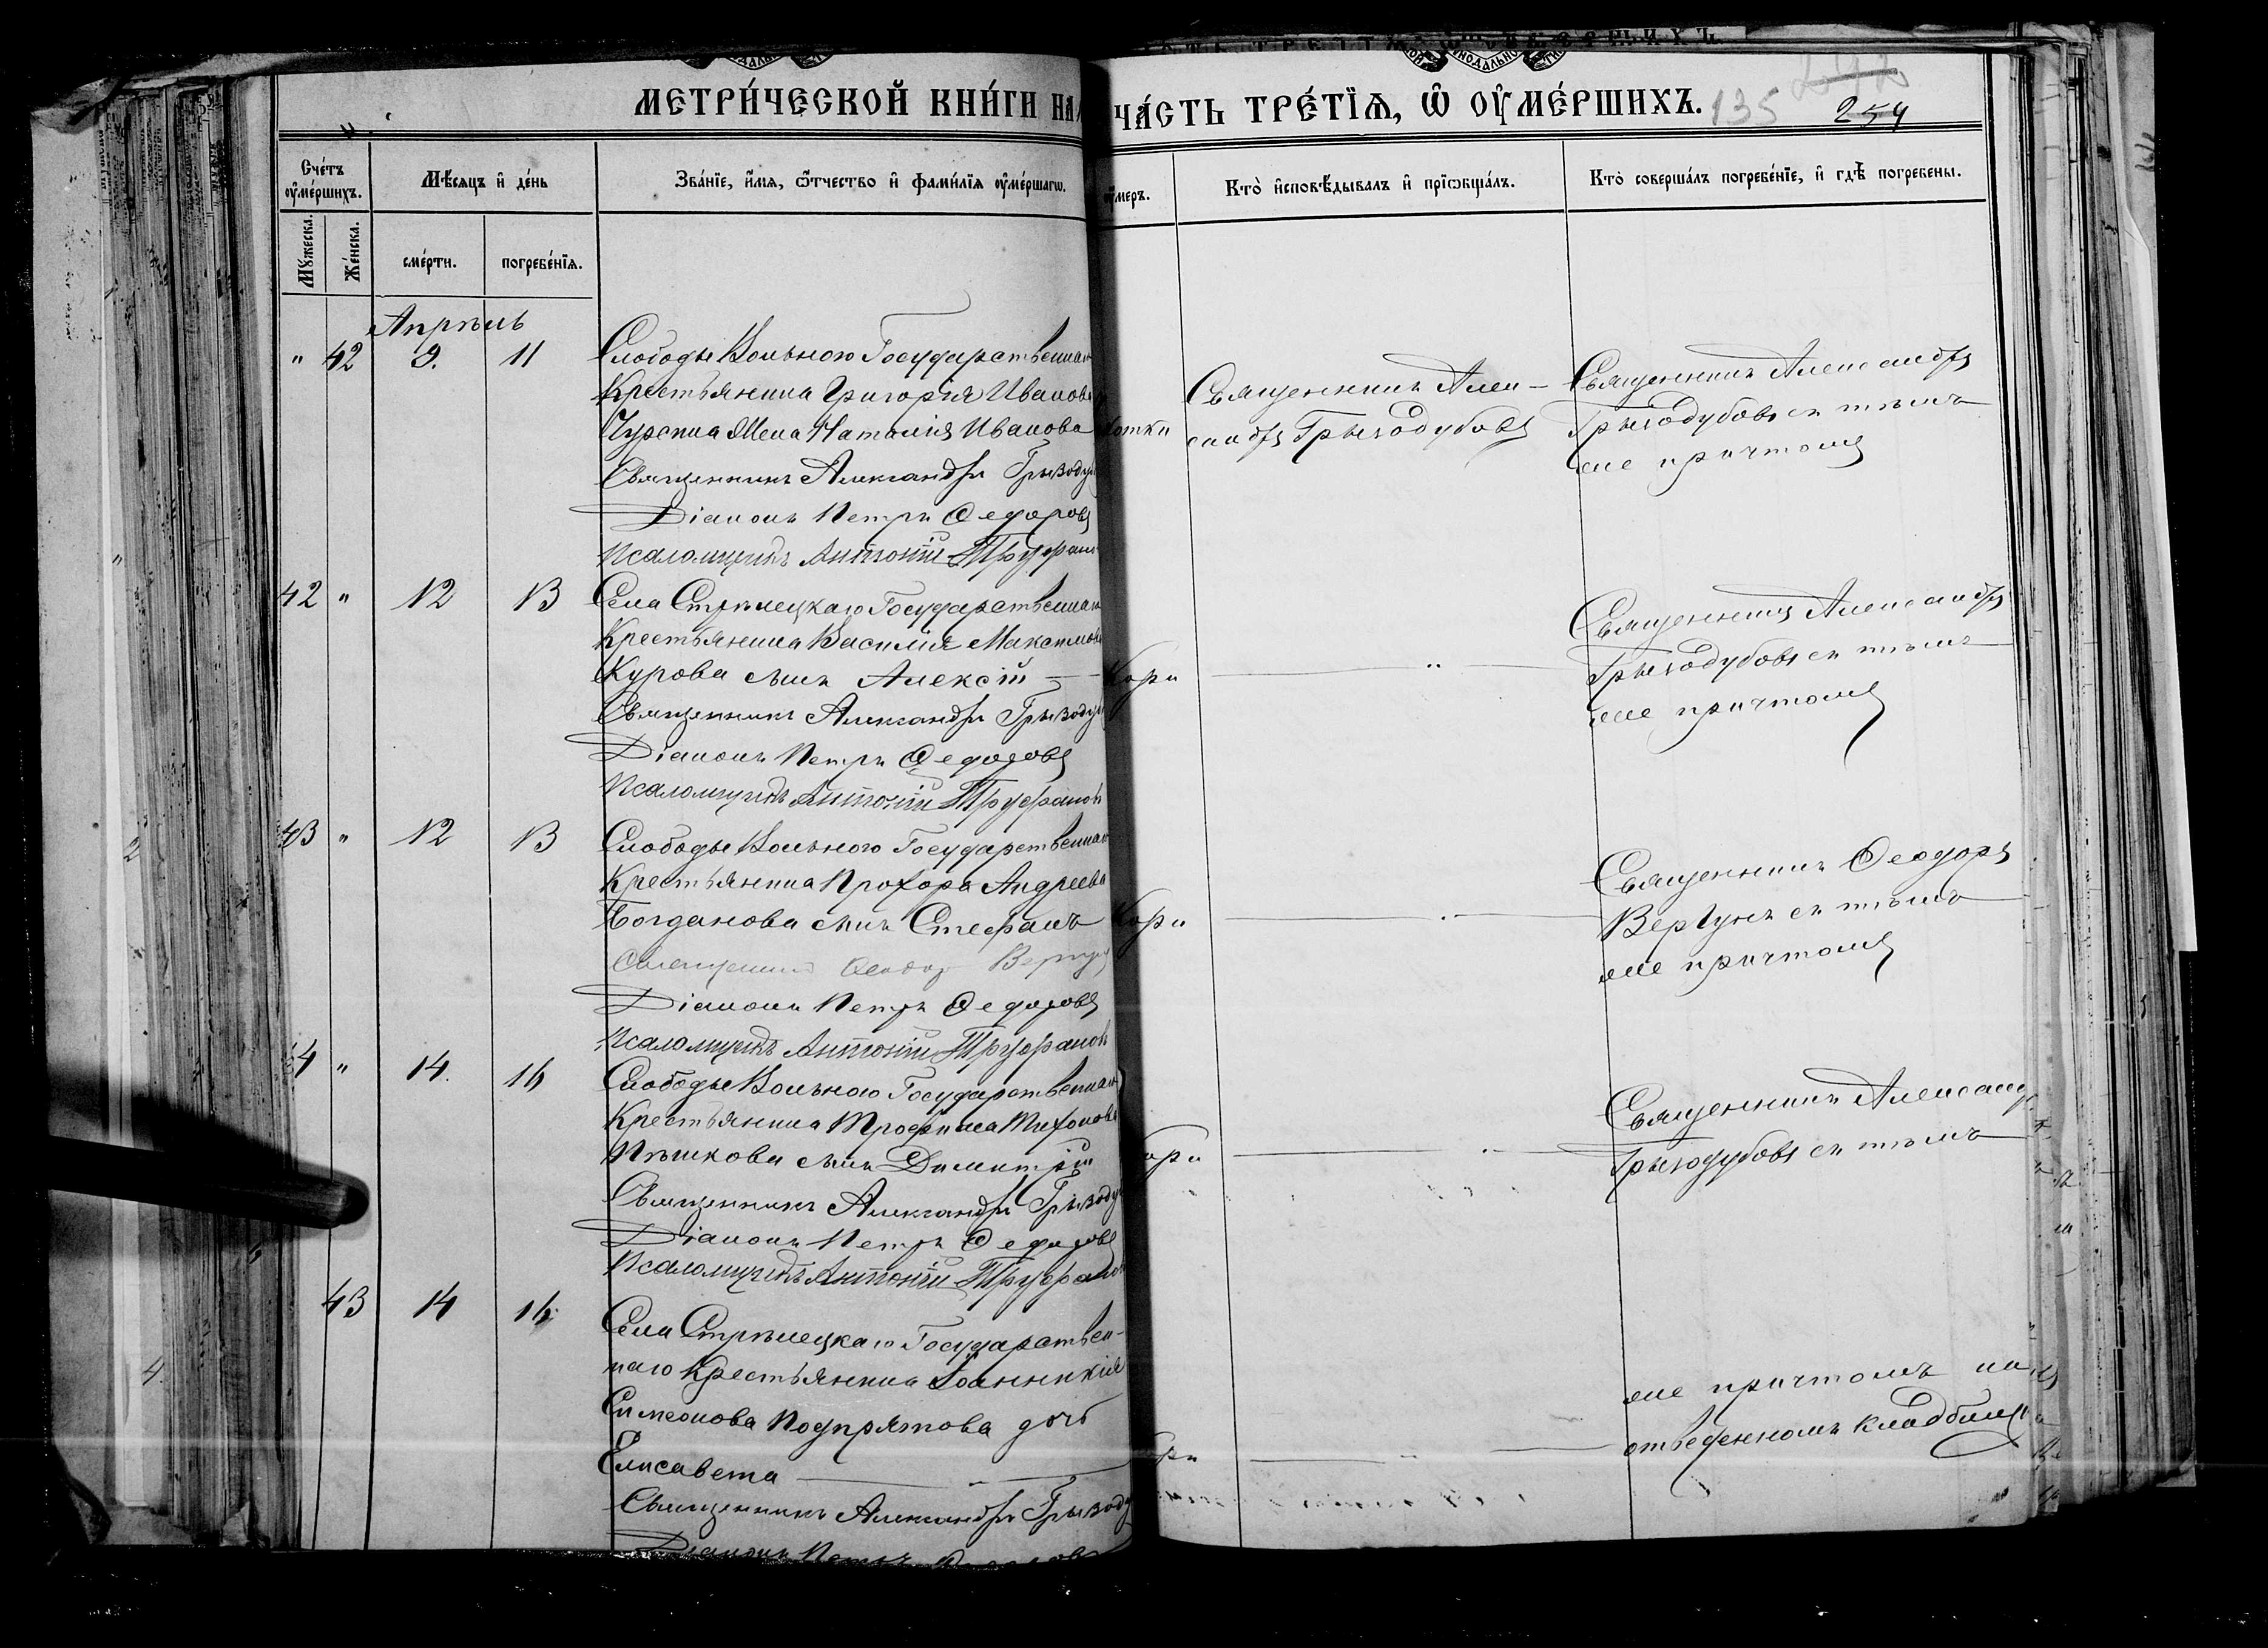 МЕТРИ́ЧЕСКОЙ КНИ́ГИ НА
ЧА́СТЬ ТРЕ́ТЇѦ, Ѡ҆ ОУ҆МЕ́РШИХЪ.
135
254
Сче́тъ
оу҆ме́ршихъ.
Мꙋжеска.
Же́нска.
Мѣ́сяцъ и҆ де́нь
сме́рти.
погребе́нїѧ.
Зва́нїе, и҆́мѧ, ѻ҆́тчество и҆ фами́лїѧ оу҆ме́ршагѡ.
оу҆́меръ.
Кто̀ и҆сповѣ́дывалъ и҆ прїѡбща́лъ.
Кто̀ соверша́лъ погребе́нїе, и҆ гдѣ̀ погребены.
Апрѣль
" 42 9. 11
Слободы Вольного Государственнаго
Крестьянина Григорія Иванова
Чурсина Жена Наталія Иванова
Священникъ Александръ Грызоду
Діаконъ Петръ Ѳедоровъ
Псаломщикъ Антоній Труфанов
чахотки
Священникъ Алек-
сандръ Грызодубовъ
Священникъ Александръ
Грызодубовъ съ тѣмъ
же причтомъ
42 " 12 13
Села Стрѣлецкаго Государственнаго
Крестьянина Василія Максимова
Курова сынъ Алексій
Священникъ Александръ Грызоду
Діаконъ Петръ Ѳедоровъ
Псаломщикъ Антоній Труфановъ
Кори
Священникъ Александръ
Грызодубовъ съ тѣмъ
же причтомъ
43 " 12 13
Слободы Вольного Государственнаго
Крестьянина Прохора Андреева
Богданова сынъ Стефанъ
Священникъ Ѳеодор Вергун
Діаконъ Петръ Ѳедоровъ
Псаломщикъ Антоній Труфановъ
Кори
Священникъ Ѳеодоръ
Вергунъ съ тѣмъ
же причтомъ
44 " 14. 16
Слободы Вольного Государственнаго
Крестьянина Трофима Тихонова
Пѣшкова сынъ Димитрій
Священникъ Александръ Грызоду
Діаконъ Петръ Ѳедоровъ
Псаломщикъ Антоній Труфанов
Кори
Священникъ Александ
Грызодубовъ съ тѣмъ
43 14 16
Села Стрѣлецкаго Государствен-
наго Крестьянина Іоанникія
Симеонова Подпрятова дочь
Елисавета
Священникъ Александръ Грызоду
Діаконъ Петръ Ѳедоровъ
ори
же причтомъ на
отведенномъ кладбищѣ